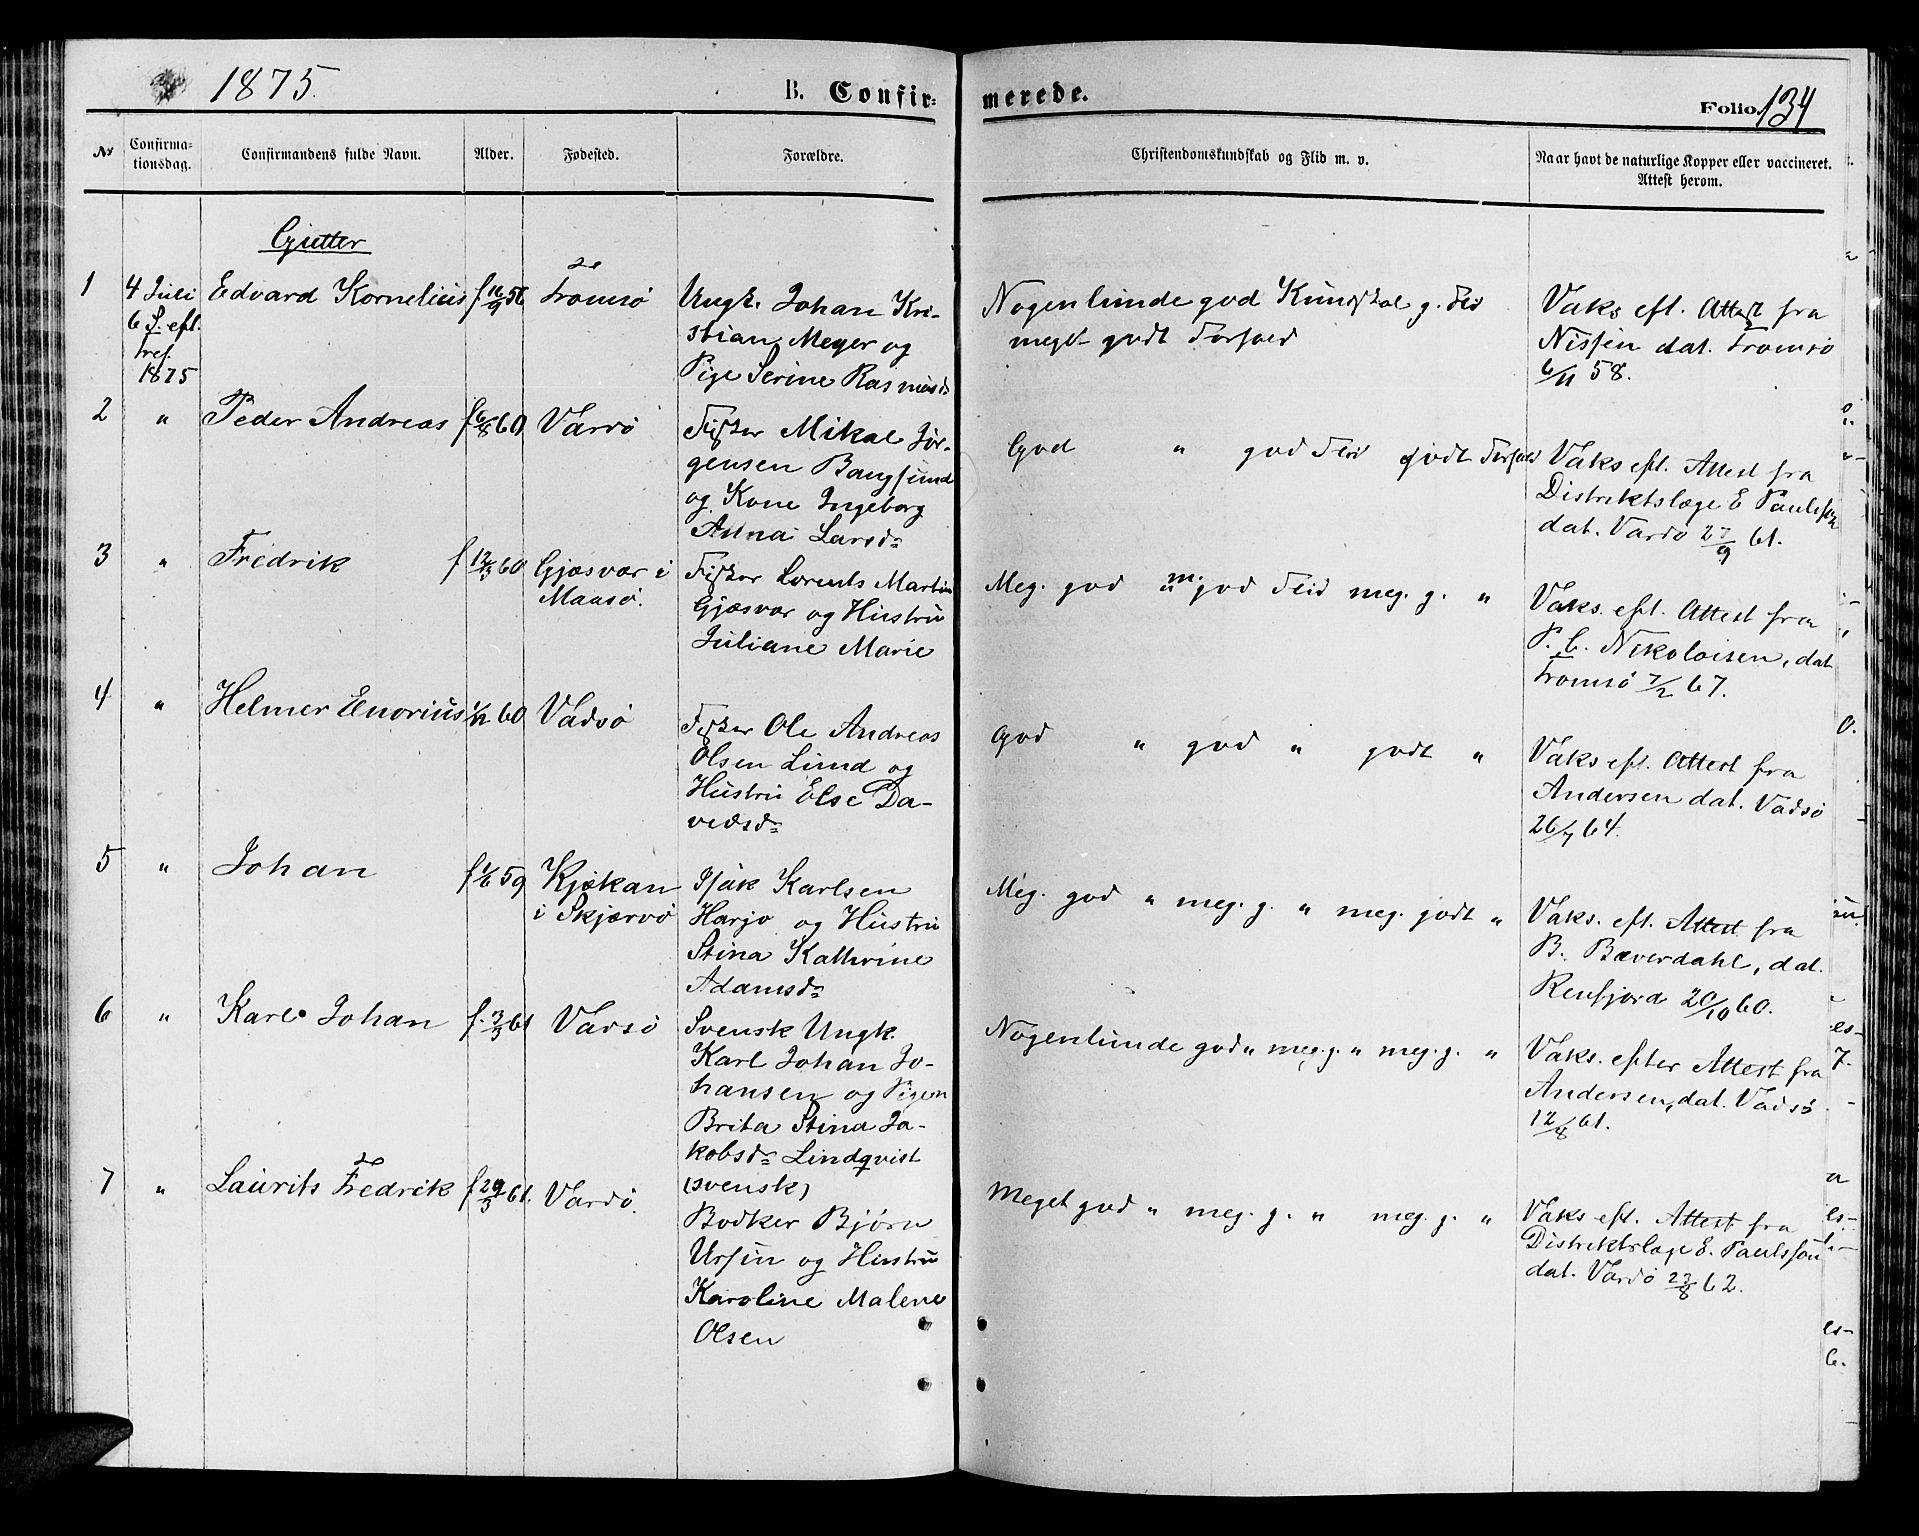 1875.
B. Confir-
merede.
Folio 134
No
Confirma-
tionsdag.
Confirmandens fulde Navn.
Alder.
Fødested.
Forældre.
Christendomskundskab og Flid m. v.
Naar havt de naturlige Kopper eller vaccineret.
Attest herom.
Gutter
1
4 Juli
6 S. eft.
tref.
1875
Edvard Kornelius
f 16/9 56
Tromsø
Ungk. Johan Kri-
stian Meyer og
Pige Serine Rasmusd
Nogenlunde god Kundskab g. Flid
meget godt Forhold
Vaks eft. Attest fra
Nissen dat. Tromsø
6/11 58.
2
"
Peder Andreas
f 6/8 60
Vardø
Fisker Mikal Jør-
gensen Bangsund
og Kone Ingeborg
Anna Larsdr
God " god Flid godt Forhold
Vaks eft. Attest fra
Distriktslæge E Paulssen
dat. Vardø 27/9 61.
3
"
Fredrik
f 12/3 60
Gjæsvær i
Maasø.
Fisker Lorents Martin
Gjæsvær og Hustru
Juliane Marie
Meg. god " m. god Flid meg. g. "
Vaks. eft. Attest fra
P. C. Nikolaisen, dat
Tromsø 7/2 67.
4
"
Helmer Enorius
1/11 60
Vadsø
Fisker Ole Andreas
Olsen Lund og
Hustru Else Da-
vidsdr
God " god " godt "
Vaks eft. Attest fra
Andersen dat. Vadsø
26/7 64.
5
"
Johan
f 1/6 59
Kjækan
i Skjærvø
Isak Karlsen
Harjo og Hustru
Stina Kathrine
Adamsdr
Meg. god " meg. g. " meg. godt "
Vaks. eft. Attest fra
B. Bæverdahl, dat.
Renfjord 20/10 60.
6
"
Karl Johan
f. 3/3 61
Vadsø
Svensk Ungk.
Karl Johan Jo-
hansen og Pigen
Brita Stina Ja-
kobsdr Lindqvist
(svensk)
Nogenlunde god " meg. g. " meg. g. "
Vaks. efter Attest fra
Andersen, dat. Vadsø
12/8 61.
7
"
Laurits Fredrik
f 29/3 61.
Vardø.
Bødker Bjørn
Ursin og Hustru
Karoline Malene
Olsen
Meget god " meg. g. " meg. g. "
Vaks eft. Attest fra
Distriktslæge E. Paulssen
dat. Vardø 23/8 62.